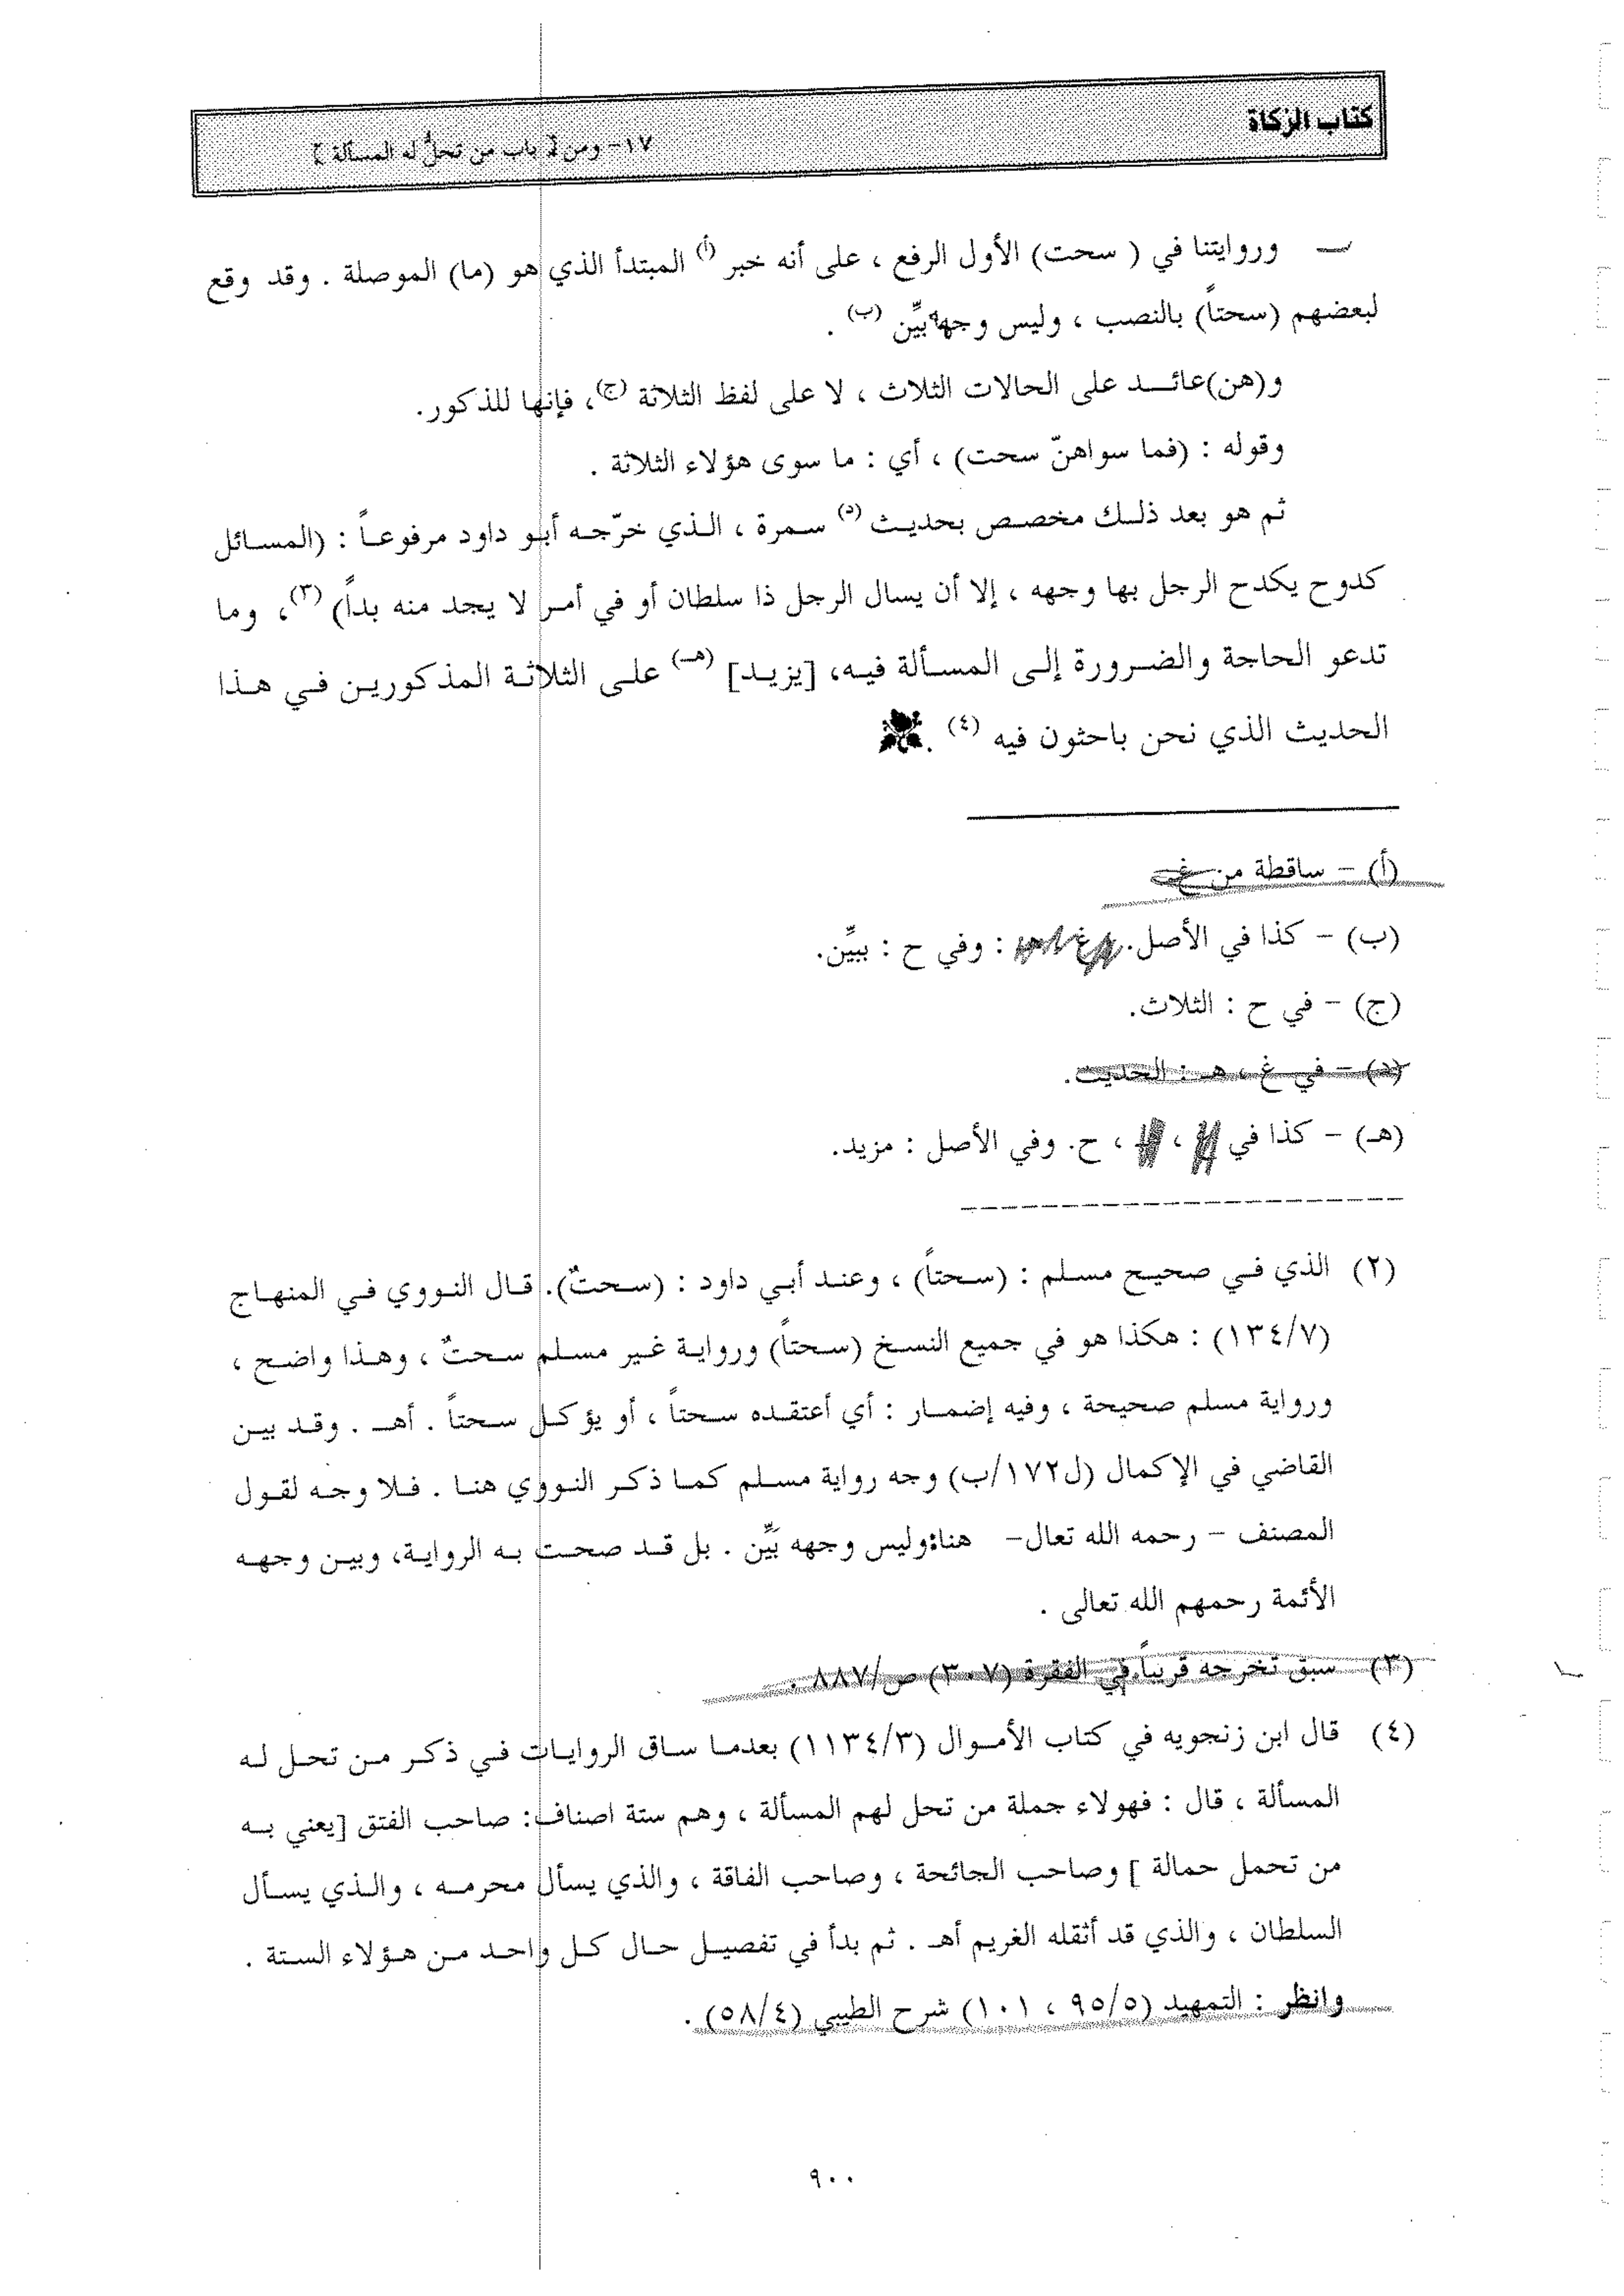 كتاب الزكاة
١٧- ومن [ باب من تحلُّ له المسألة ]
ــ وروايتنا في ( سحت) الأول الرفع ، على أنه خبر (أ) المبتدأ الذي هو (ما) الموصلة . وقد وقع
لبعضهم (سحتاً) بالنصب ، وليس وجهه بيِّن (ب) .
و(هن)عائد على الحالات الثلاث ، لا على لفظ الثلاثة (ج)، فإنها للذكور.
وقوله : (فما سواهنّ سحت) ، أي : ما سوى هؤلاء الثلاثة .
ثم هو بعد ذلك مخصص بحديث (د) سمرة ، الذي خرّجه أبو داود مرفوعاً : (المسائل
كدوح يكدح الرجل بها وجهه ، إلا أن يسال الرجل ذا سلطان أو في أمر لا يجد منه بداً) (٣)، وما
تدعو الحاجة والضرورة إلى المسألة فيه، [يزيد] (هـ) على الثلاثة المذكورين في هذا
الحديث الذي نحن باحثون فيه (٤) .
(أ) - ساقطة من غ
(ب) - كذا في الأصل. : وفي ح : ببيِّن.
(ج) - في ح : الثلاث.
(د) - في غ ، هـ : الحديث.
(هـ) - كذا في ، ، ح. وفي الأصل : مزيد.
(٢) الذي في صحيح مسلم : (سحتاً) ، وعند أبي داود : (سحتٌ). قال النووي في المنهاج
(١٣٤/٧) : هكذا هو في جميع النسخ (سحتاً) ورواية غير مسلم سحتٌ ، وهذا واضح ،
ورواية مسلم صحيحة ، وفيه إضمار : أي أعتقده سحتاً ، أو يؤكل سحتاً . أهـ . وقد بين
القاضي في الإكمال (ل١٧٢/ب) وجه رواية مسلم كما ذكر النووي هنا . فلا وجه لقول
المصنف - رحمه الله تعال- هنا:وليس وجهه بَيِّن . بل قد صحت به الرواية، وبين وجهه
الأئمة رحمهم الله تعالى .
(٣) سبق تخرجه قريباً في الفقرة (٣٠٧) ص/٨٨٧ .
(٤) قال ابن زنجويه في كتاب الأموال (١١٣٤/٣) بعدما ساق الروايات في ذكر من تحل له
المسألة ، قال : فهولاء جملة من تحل لهم المسألة ، وهم ستة اصناف: صاحب الفتق [يعني به
من تحمل حمالة ] وصاحب الجائحة ، وصاحب الفاقة ، والذي يسأل محرمه ، والذي يسأل
السلطان ، والذي قد أثقله الغريم أهـ . ثم بدأ في تفصيل حال كل واحد من هؤلاء الستة .
وانظر : التمهيد (٩٥/٥ ، ١٠١) شرح الطيبي (٥٨/٤) .
٩٠٠